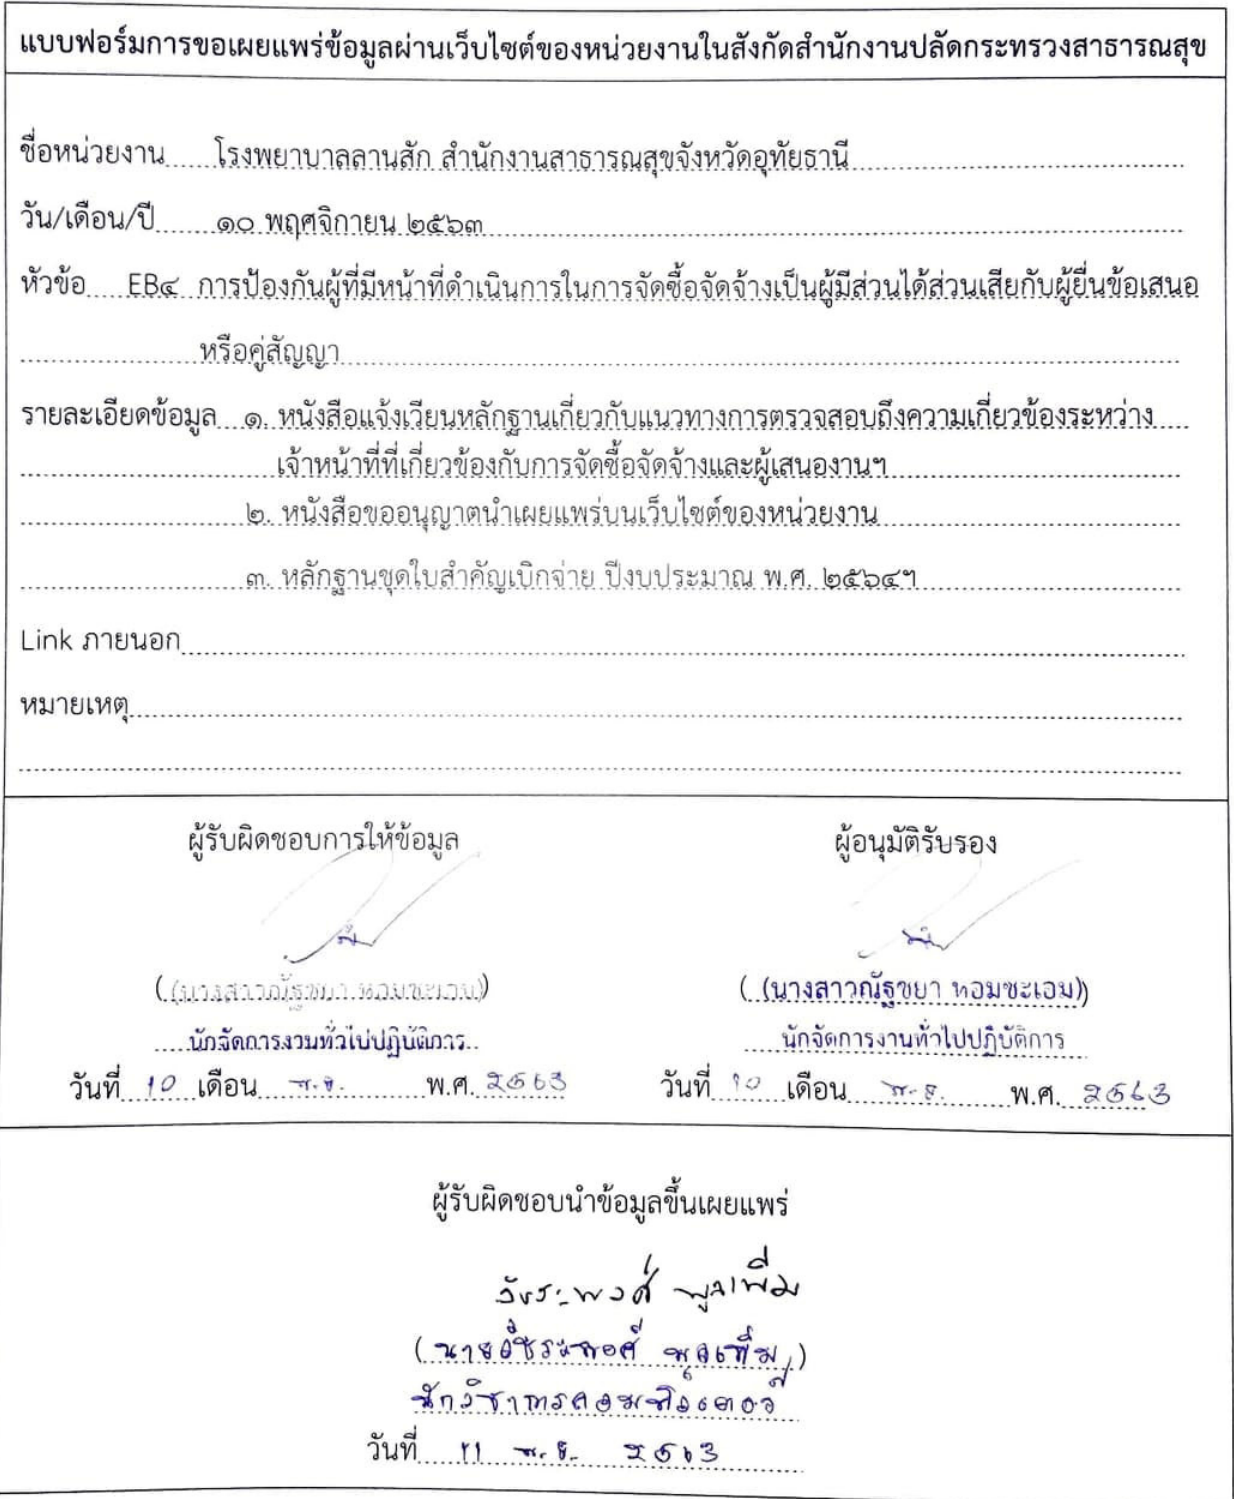 แบบฟอร์มการขอเผยแพร่ข้อมูลผ่านเว็บไซต์ของหน่วยงานในสังกัดสำนักงานปลัดกระทรวงสาธารณสุข
ชื่อหน่วยงาน โรงพยาบาลลานสัก สำนักงานสาธารณสุขจังหวัดอุทัยธานี
วัน/เดือน/ปี ๑๐ พฤศจิกายน ๒๕๖๓
หัวข้อ EB๔ การป้องกันผู้ที่มีหน้าที่ดำเนินการในการจัดซื้อจัดจ้างเป็นผู้มีส่วนได้ส่วนเสียกับผู้ยื่นข้อเสนอ
หรือคู่สัญญา
รายละเอียดข้อมูล ๑. หนังสือแจ้งเวียนหลักฐานเกี่ยวกับแนวทางการตรวจสอบถึงความเกี่ยวข้องระหว่าง
เจ้าหน้าที่ที่เกี่ยวข้องกับการจัดซื้อจัดจ้างและผู้เสนองานฯ
๒. หนังสือขออนุญาตนำเผยแพร่บนเว็บไซต์ของหน่วยงาน
๓. หลักฐานชุดใบสำคัญเบิกจ่าย ปีงบประมาณ พ.ศ. ๒๕๖๔ฯ
Link ภายนอก
หมายเหตุ
ผู้รับผิดชอบการให้ข้อมูล ผู้อนุมัติรับรอง
( (นางสาวณัฐชยา หอมชะเอม) ) ( (นางสาวณัฐชยา หอมชะเอม) )
นักจัดการงานทั่วไปปฏิบัติการ นักจัดการงานทั่วไปปฏิบัติการ
วันที่ 10 เดือน พ.ย. พ.ศ. 2563 วันที่ 10 เดือน พ.ย. พ.ศ. 2563
ผู้รับผิดชอบนำข้อมูลขึ้นเผยแพร่
วัชระพงศ์ พูลเพิ่ม
(นายวัชระพงศ์ พูลเพิ่ม)
นักวิชาการคอมพิวเตอร์
วันที่ 11 พ.ย. 2563